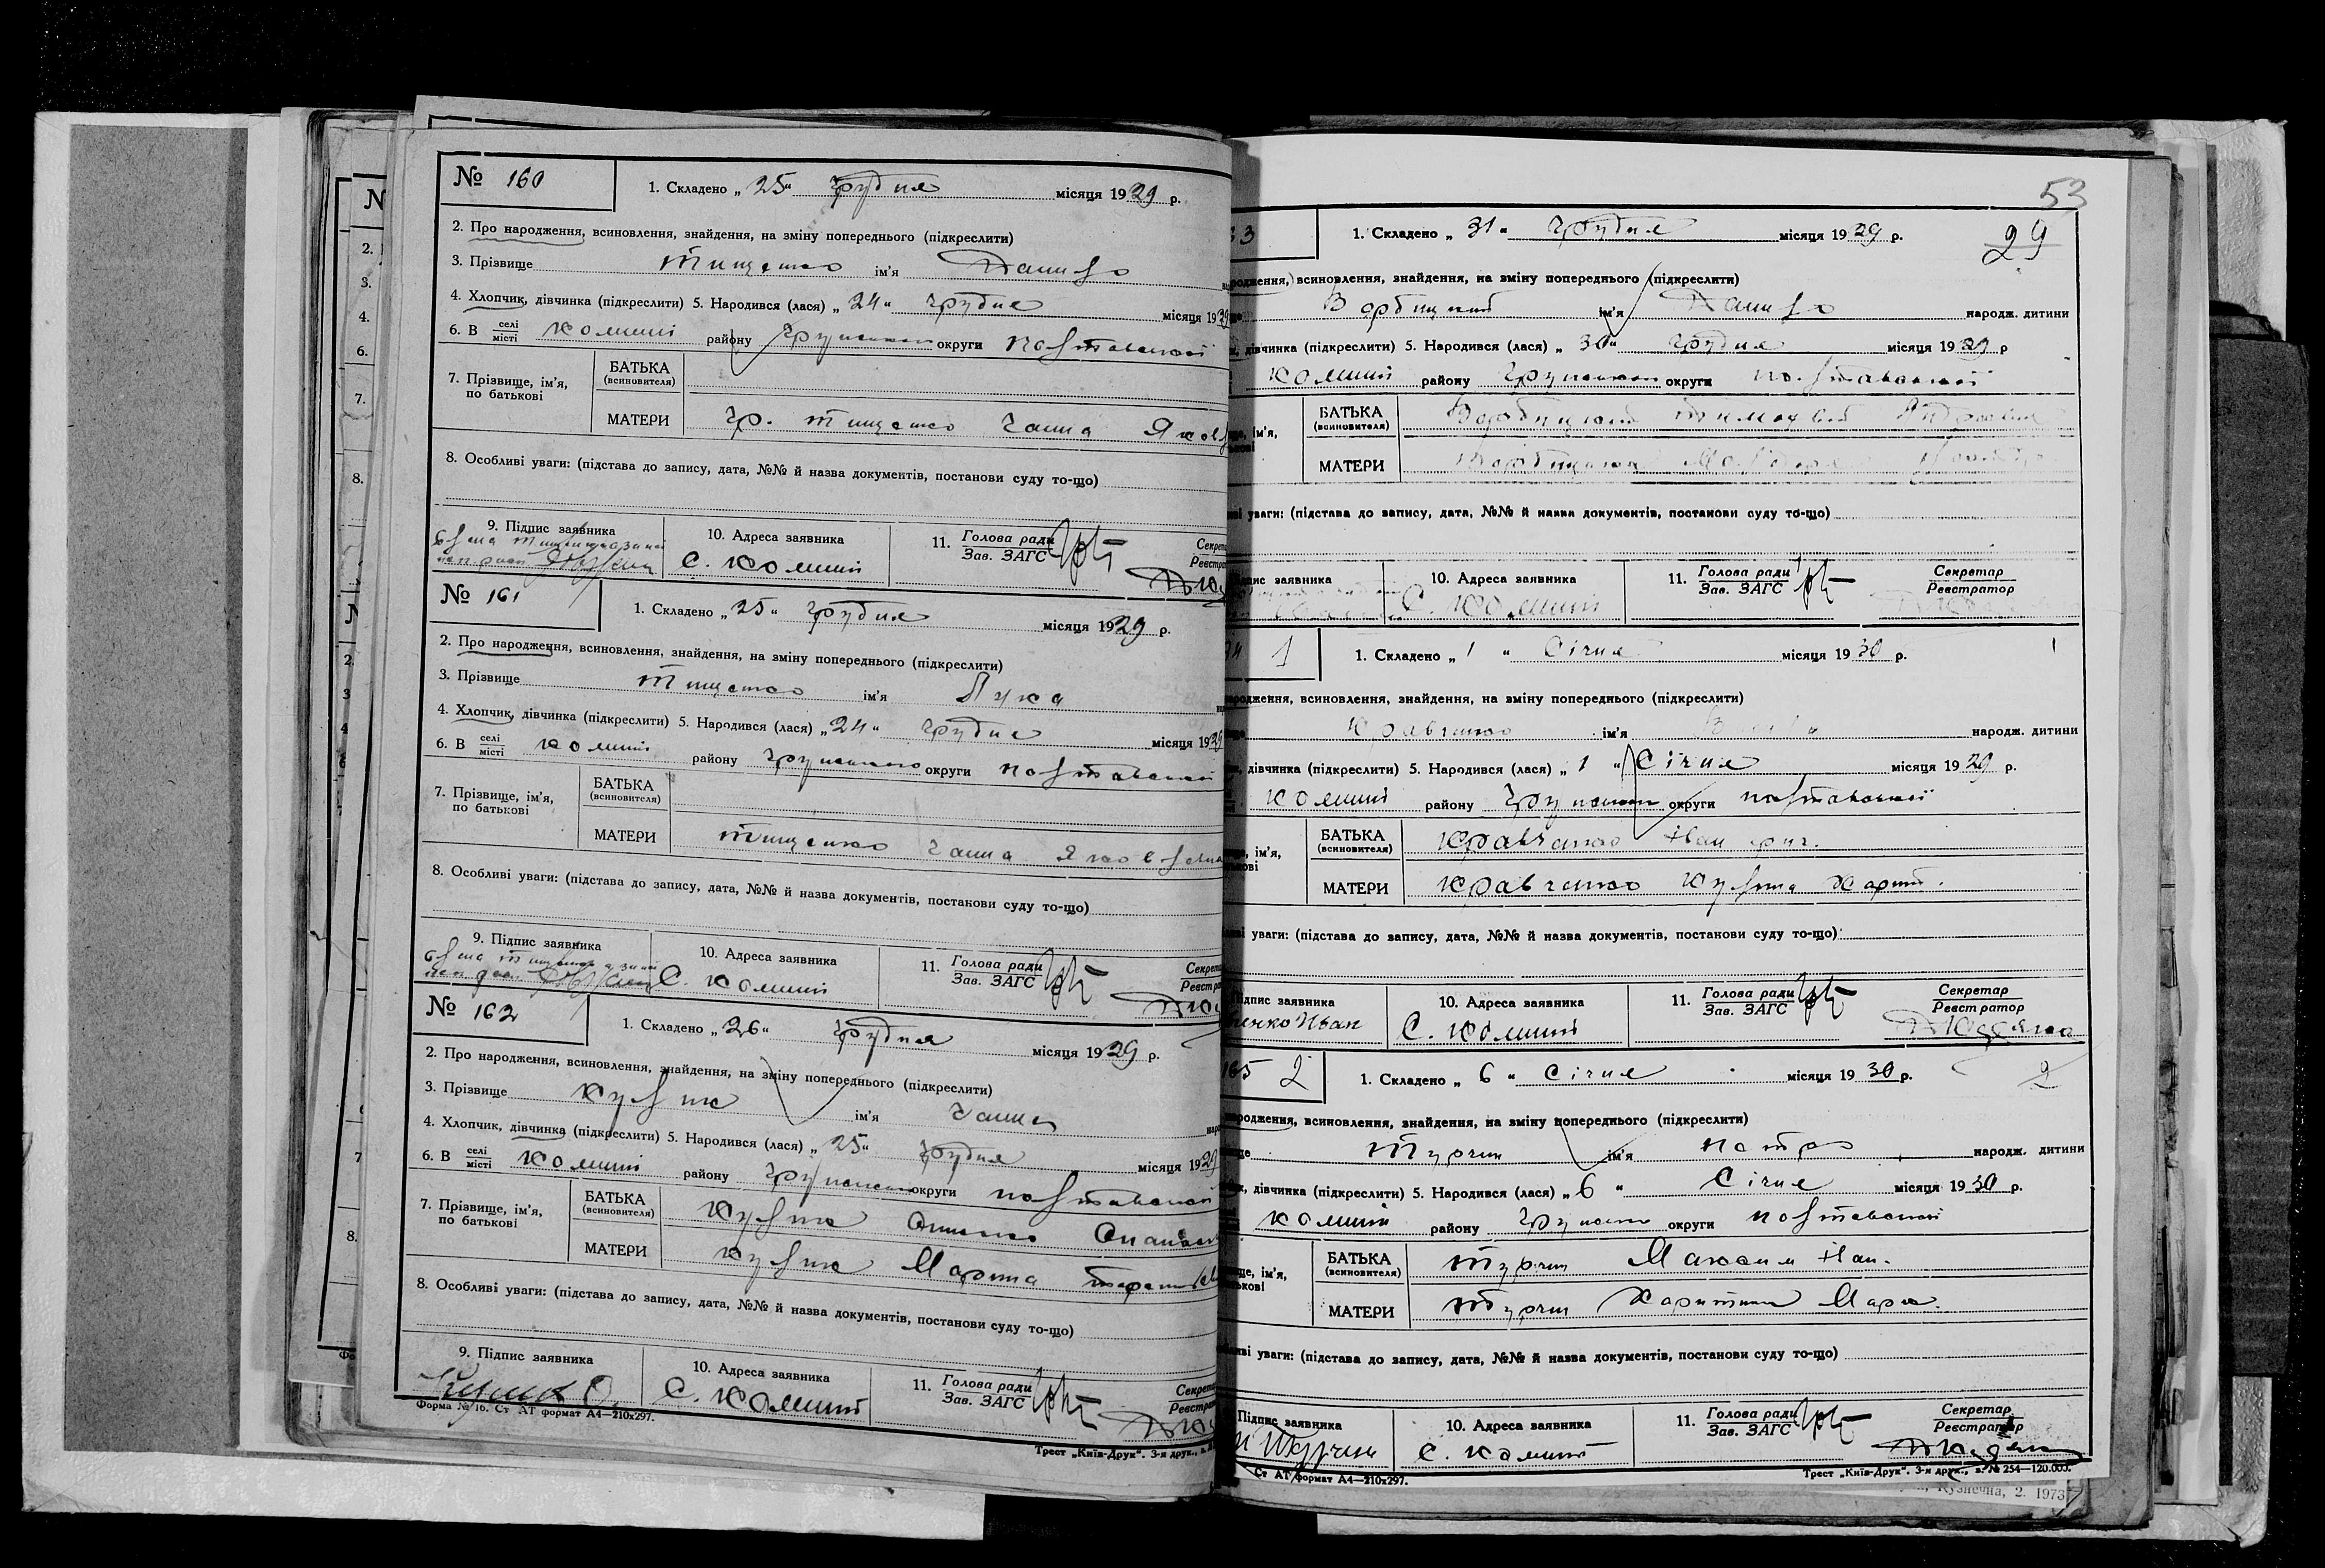 № 160
1. Складено „ 25 “ грудня місяця 1929 р.
2. Про народження, всиновлення, знайдення, на зміну попереднього (підкреслити)
3. Прізвище Тищенко ім'я Данило
4. Хлопчик, дівчинка (підкреслити) 5. Народився (лася) „ 24 “ грудня місяця 1929
6. В селі місті Комиші району Грунського округи Полтавської
7. Прізвище, ім'я, по батькові
БАТЬКА (всиновителя)
МАТЕРИ Гр. Тищенко Ганна Яковл
8. Особливі уваги: (підстава до запису, дата, №№ й назва документів, постанови суду то-що)
9. Підпис заявника
10. Адреса заявника
С. Комиші
11. Голова ради
Зав. ЗАГС
Секрета
Реєстра
№ 161
1. Складено „ 25 “ грудня місяця 1929 р.
2. Про народження, всиновлення, знайдення, на зміну попереднього (підкреслити)
3. Прізвище Тищенко ім'я Лука
4. Хлопчик, дівчинка (підкреслити) 5. Народився (лася) „ 24 “ грудня місяця 1929
6. В селі місті Комиші району Грунського округи Полтавської
7. Прізвище, ім'я, по батькові
БАТЬКА (всиновителя)
МАТЕРИ Тищенко Ганна Яковлевна
8. Особливі уваги: (підстава до запису, дата, №№ й назва документів, постанови суду то-що)
9. Підпис заявника
10. Адреса заявника
С. Комиші
11. Голова ради
Зав. ЗАГС
Секрета
Реєстра
№ 162
1. Складено „ 26 “ грудня місяця 1929 р.
2. Про народження, всиновлення, знайдення, на зміну попереднього (підкреслити)
3. Прізвище Кулик ім'я Ганна
4. Хлопчик, дівчинка (підкреслити) 5. Народився (лася) „ 25 “ грудня місяця 1929
6. В селі місті Комиші району Грунського округи Полтавської
7. Прізвище, ім'я, по батькові
БАТЬКА (всиновителя) Кулик
МАТЕРИ Кулик Марина
8. Особливі уваги: (підстава до запису, дата, №№ й назва документів, постанови суду то-що)
9. Підпис заявника
10. Адреса заявника
С. Комиші
11. Голова ради
Зав. ЗАГС
Секрета
Реєстра
Форма № 16. Ст АТ формат А4—210х297.
Трест „Київ-Друк“. 3-я друк.,
53
29
1. Складено „ 31 “ грудня місяця 1929 р.
родження, всиновлення, знайдення, на зміну попереднього (підкреслити)
Вербицкий ім'я Данило народж. дитини
дівчинка (підкреслити) 5. Народився (лася) „ 30 “ грудня місяця 1929 р
Комиші району Грунського округи Полтавської
БАТЬКА (всиновителя) Вербицкий Тимофей
МАТЕРИ
уваги: (підстава до запису, дата, №№ й назва документів, постанови суду то-що)
заявника
10. Адреса заявника
С. Комиші
11. Голова ради
Зав. ЗАГС
Секретар
Реєстратор
1
1. Складено „ 1 “ Січня місяця 1930 р.
родження, всиновлення, знайдення, на зміну попереднього (підкреслити)
Кравченко ім'я народж. дитини
дівчинка (підкреслити) 5. Народився (лася) „ 1 “ Січня місяця 1929 р.
Комиші району Грунського округи Полтавської
БАТЬКА (всиновителя) Кравченко Иван
МАТЕРИ Кравченко Харит.
уваги: (підстава до запису, дата, №№ й назва документів, постанови суду то-що)
Підпис заявника
енко Иван
10. Адреса заявника
С. Комиші
11. Голова ради
Зав. ЗАГС
Секретар
Реєстратор
165 2
1. Складено „ 6 “ Січня місяця 1930 р.
2
родження, всиновлення, знайдення, на зміну попереднього (підкреслити)
Турчин ім'я Петро народж. дитини
дівчинка (підкреслити) 5. Народився (лася) „ 6 “ Січня місяця 1930 р.
Комиші району Грунського округи Полтавської
БАТЬКА (всиновителя) Турчин Максим Иван.
МАТЕРИ Турчин Харитина Марк.
уваги: (підстава до запису, дата, №№ й назва документів, постанови суду то-що)
Підпис заявника
Турчин
10. Адреса заявника
С. Комиші
11. Голова ради
Зав. ЗАГС
Секретар
Реєстратор
Ст АТ формат А4—210х297.
Трест „Київ-Друк“. 3-я друк., з. № 254—120.000.
Кузнечна, 2. 1973